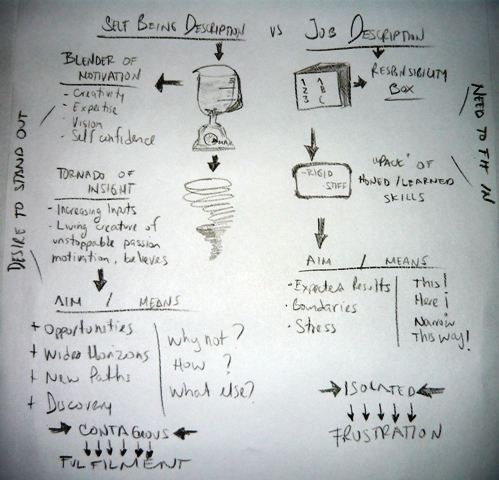 SELF BEING DESCRIPTION VS JOB DESCRIPTION
BLENDER OF
MOTIVATION
- Creativity
- Expertise
- Vision
- Self confidence
MAX
DESIRE TO STAND OUT
TORNADO OF
INSIGHT
- Increasing Inputs
- Living creature of
unstoppable passion
motivation, believes
AIM / MEANS
+ Opportunities
+ Wider Horizons
+ New Paths
+ Discovery
Why not?
How ?
What else?
CONTAGIOUS
FULFILMENT
1 A
2 B
3 C
RESPONSIBILITY
BOX
NEED TO FIT IN
- RIGID
STIFF
"PACK" OF
HONED/LEARNED
SKILLS
AIM / MEANS
- Expected Results
- Boundaries
- Stress
This!
Here!
Narrow
This way!
ISOLATED
FRUSTRATION